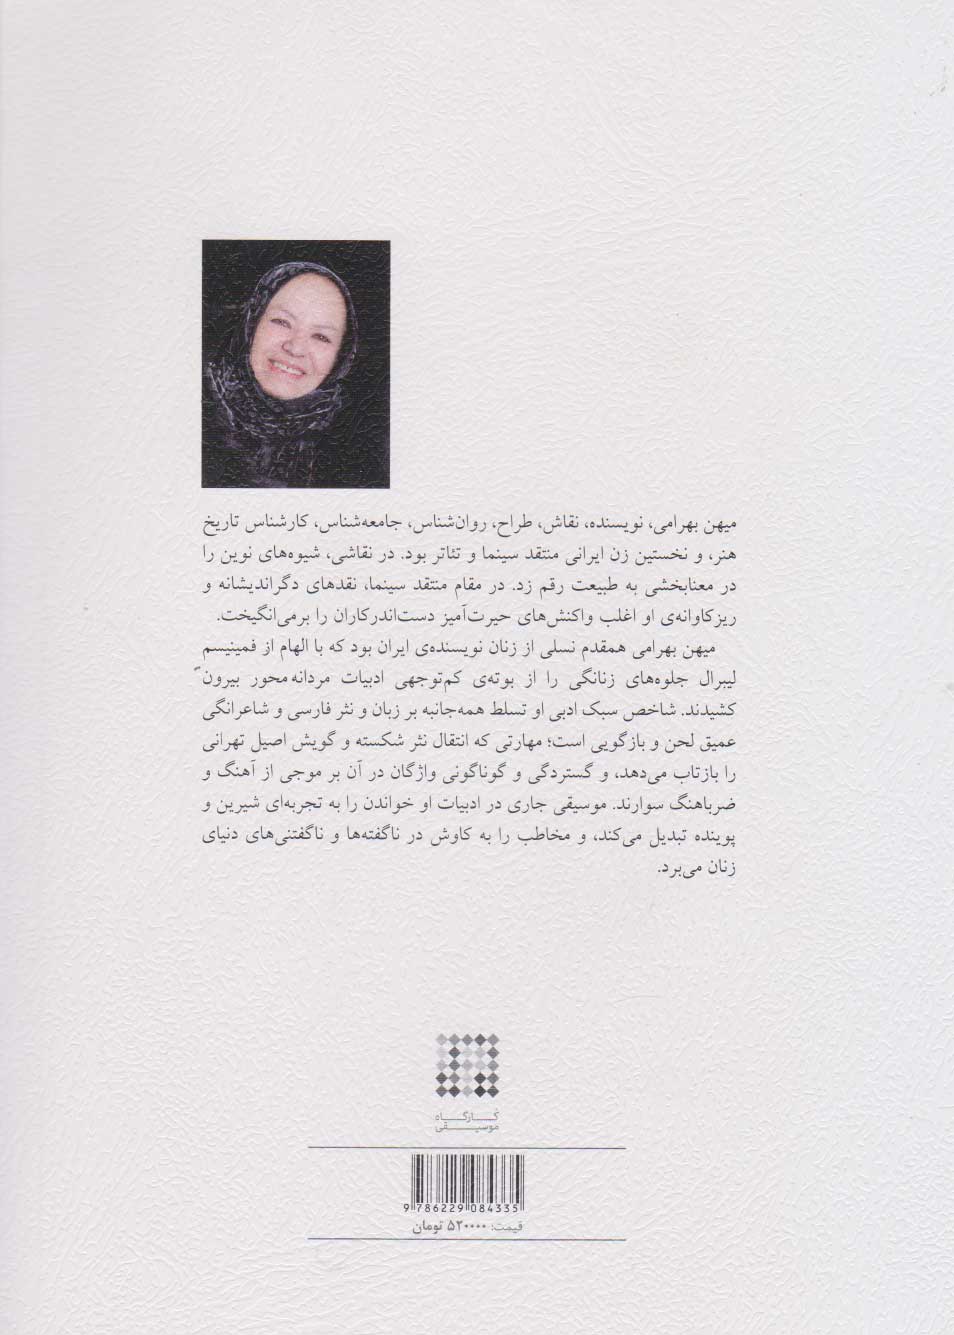 میهن بهرامی، نویسنده، نقاش، طراح، روان‌شناس، جامعه‌شناس، کارشناس تاریخ
هنر، و نخستین زن ایرانی منتقد سینما و تئاتر بود. در نقاشی، شیوه‌های نوین را
در معنابخشی به طبیعت رقم زد. در مقام منتقد سینما، نقدهای دگراندیشانه و
ریزکاوانه‌ی او اغلب واکنش‌های حیرت‌آمیز دست‌اندرکاران را برمی‌انگیخت.
میهن بهرامی همقدم نسلی از زنان نویسنده‌ی ایران بود که با الهام از فمینیسم
لیبرال جلوه‌های زنانگی را از بوته‌ی کم‌توجهی ادبیات مردانه‌محور بیرون
کشیدند. شاخص سبک ادبی او تسلط همه‌جانبه بر زبان و نثر فارسی و شاعرانگی
عمیق لحن و بازگویی است؛ مهارتی که انتقال نثر شکسته و گویش اصیل تهرانی
را بازتاب می‌دهد، و گستردگی و گوناگونی واژگان در آن بر موجی از آهنگ و
ضرباهنگ سوارند. موسیقی جاری در ادبیات او خواندن را به تجربه‌ای شیرین و
پوینده تبدیل می‌کند، و مخاطب را به کاوش در ناگفته‌ها و ناگفتنی‌های دنیای
زنان می‌برد.
کارگاه
موسیقی
9 786229 084335
قیمت: ۵۲۰۰۰۰ تومان